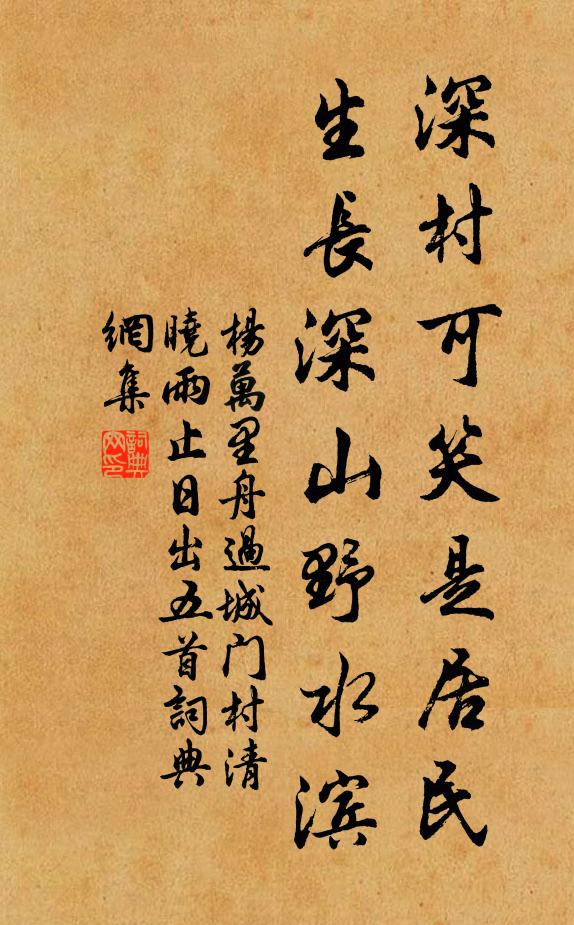 深村可笑是居民
生長深山野水滨
楊萬里舟過城门村清
曉雨止日出五首詞典
網集
詞典
网印